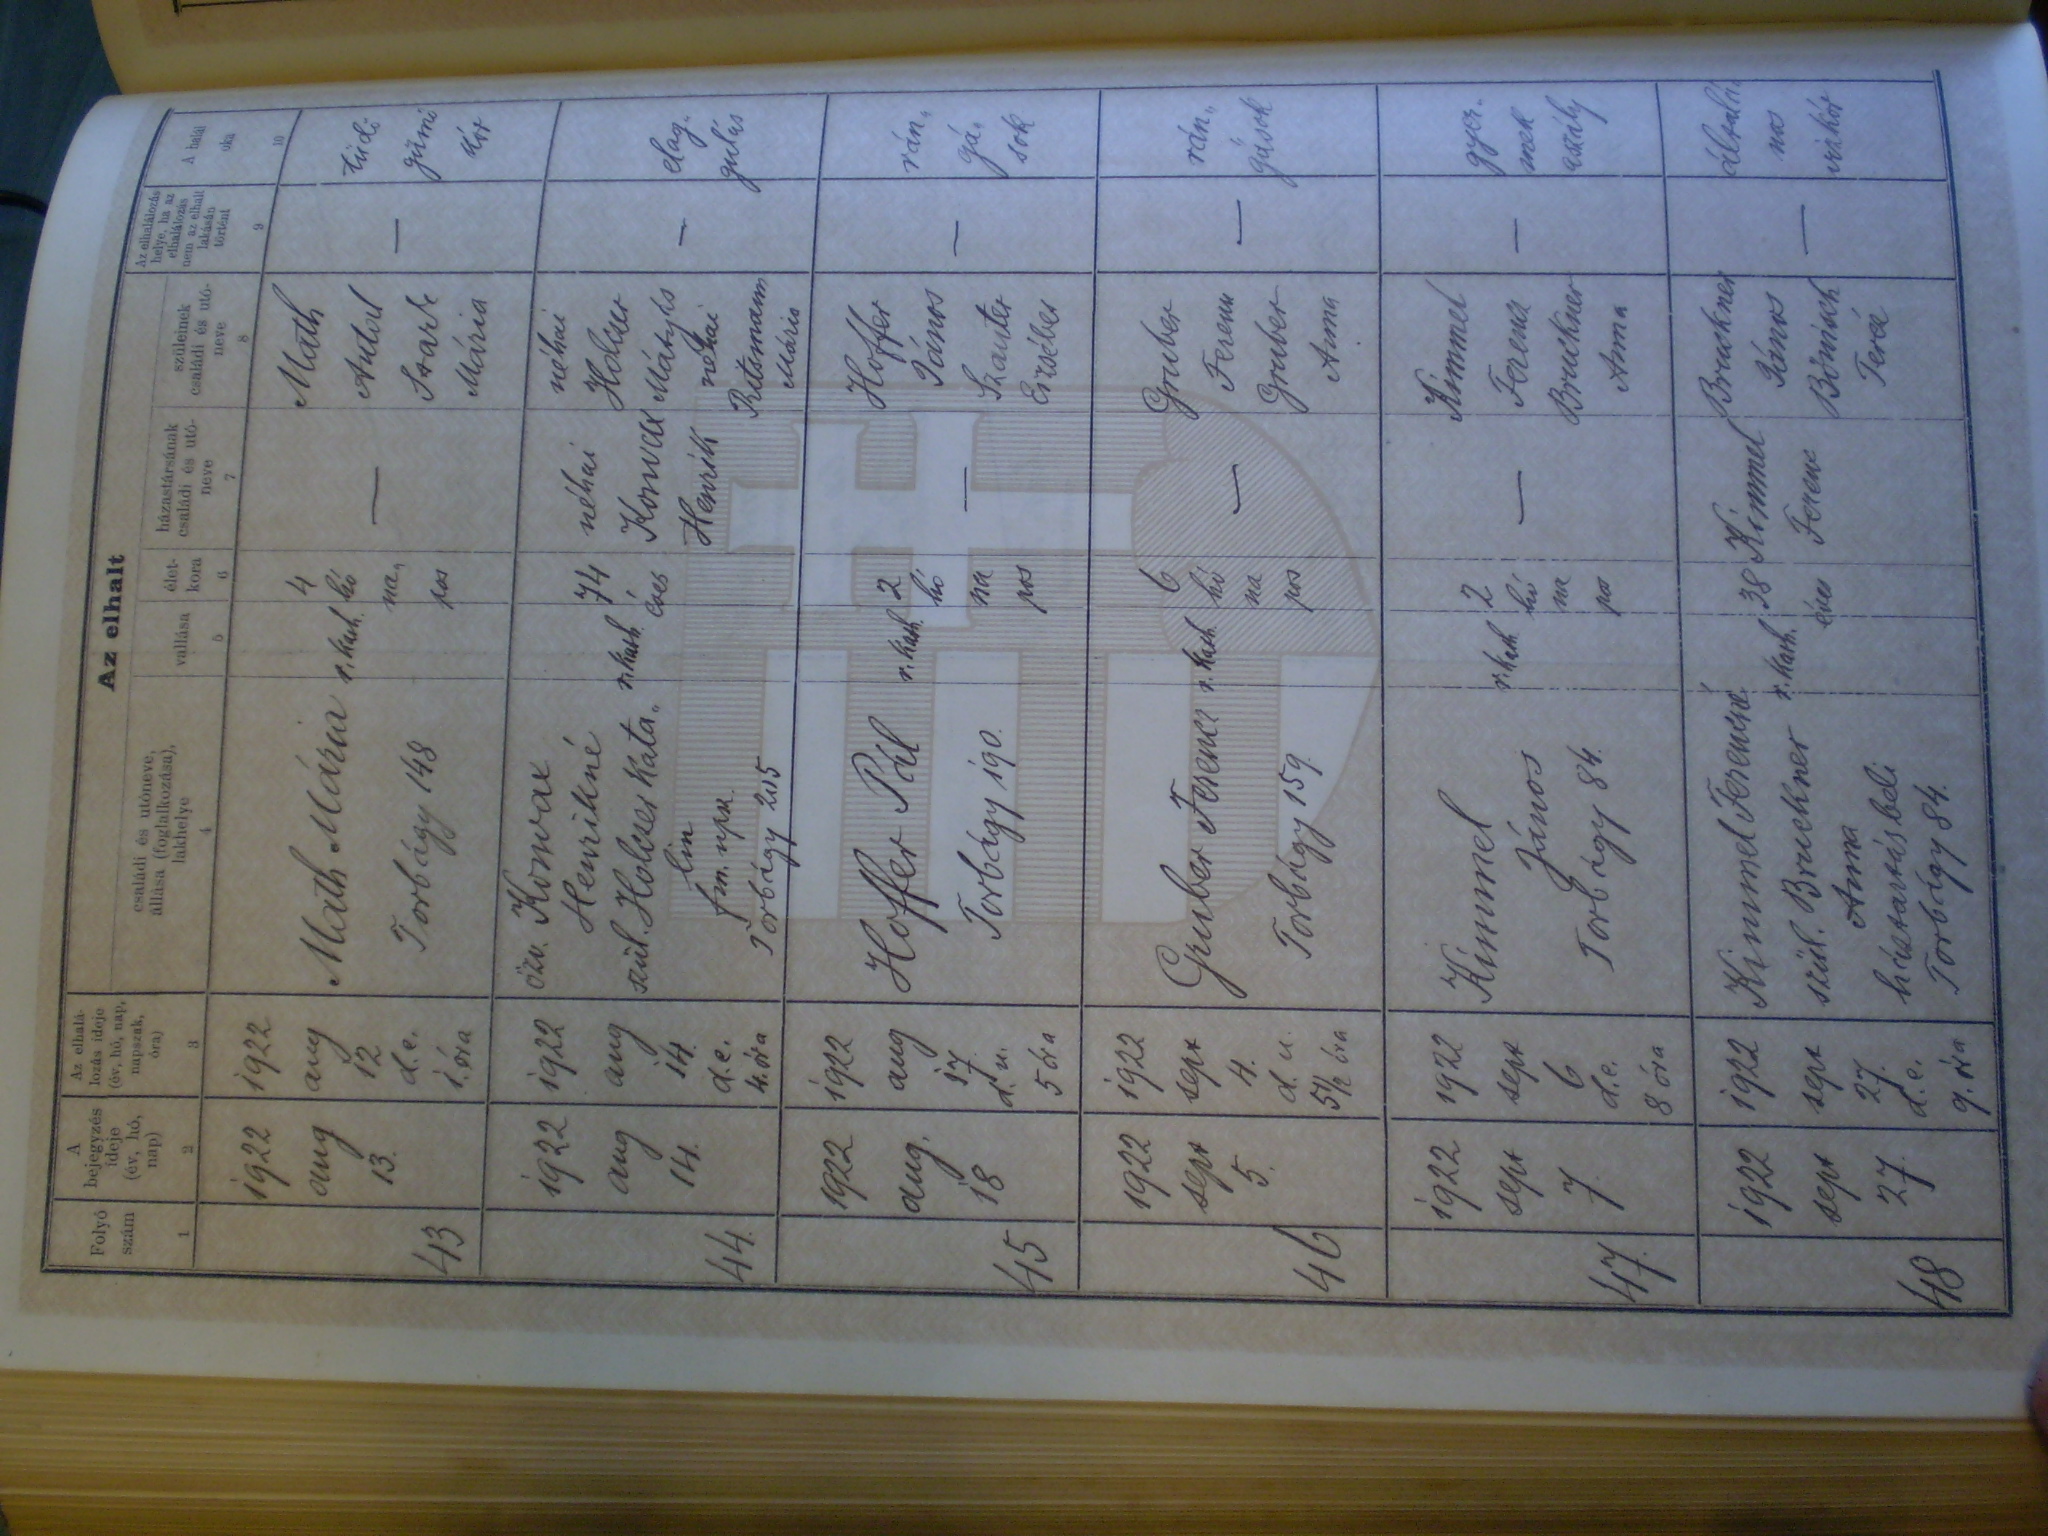 Az elhalt
Folyó
szám
A
bejegyzés
ideje
(év, hó,
nap)
Az elhalá-
lozás ideje
(év, hó, nap,
napszak,
óra)
családi és utóneve,
állása (foglalkozása),
lakhelye
vallása
élet-
kora
házastársának
családi és utó-
neve
szüleinek
családi és utó-
neve
Az elhalálozás
helye, ha az
elhalálozás
nem az elhalt
lakásán
történt
A halál
oka
1
2
3
4
5
6
7
8
9
10
43
1922
aug
13.
1922
aug
12
d.e.
1. óra
Math Mária
Torbágy 148
r. kath.
4
hó
na„
pos
—
Math
Antal
Stark
Mária
—
tüdő
gümő
kór
44.
1922
aug
14.
1922
aug
14.
d.e.
4. óra
özv. Konrax
Henrikné
szül. Holczer Kata„
lin
fm. npsz.
Torbágy 215
r. kath.
74
éves
néhai
Henrik
néhai
Mátyás
néhai
Ritsmann
Mária
—
elag-
gulás
45
1922
aug.
18
1922
aug
17.
d. u.
5 óra
Hoffer Pál
Torbágy 190.
r. kath.
2
hó
na
pos
—
Hoffer
János
Szauter
Erzsébet
—
rán„
gá„
sok
46
1922
sept
5.
1922
sept
4.
d. u.
5 1/2 óra
Gruber Ferenc
Torbágy 159.
r. kath.
6
hó
na
pos
—
Gruber
Ferenc
Gruber
Anna
—
rán„
gások
47.
1922
sept
7.
1922
sept
6
d.e.
8 óra
Kimmel
János
Torbágy 84.
r. kath.
2
hó
na
pos
—
Kimmel
Ferenc
Bruckner
Anna
—
gyer-
mek
aszály
48
1922
sept
27.
1922
sept
27.
d.e.
9. óra
Kimmel Ferencné
szül. Bruckner
Anna
háztartásbeli
Torbágy 84.
r. kath.
38
éves
Kimmel
Ferenc
Bruckner
János
Teréz
—
általá
nos
vízkór